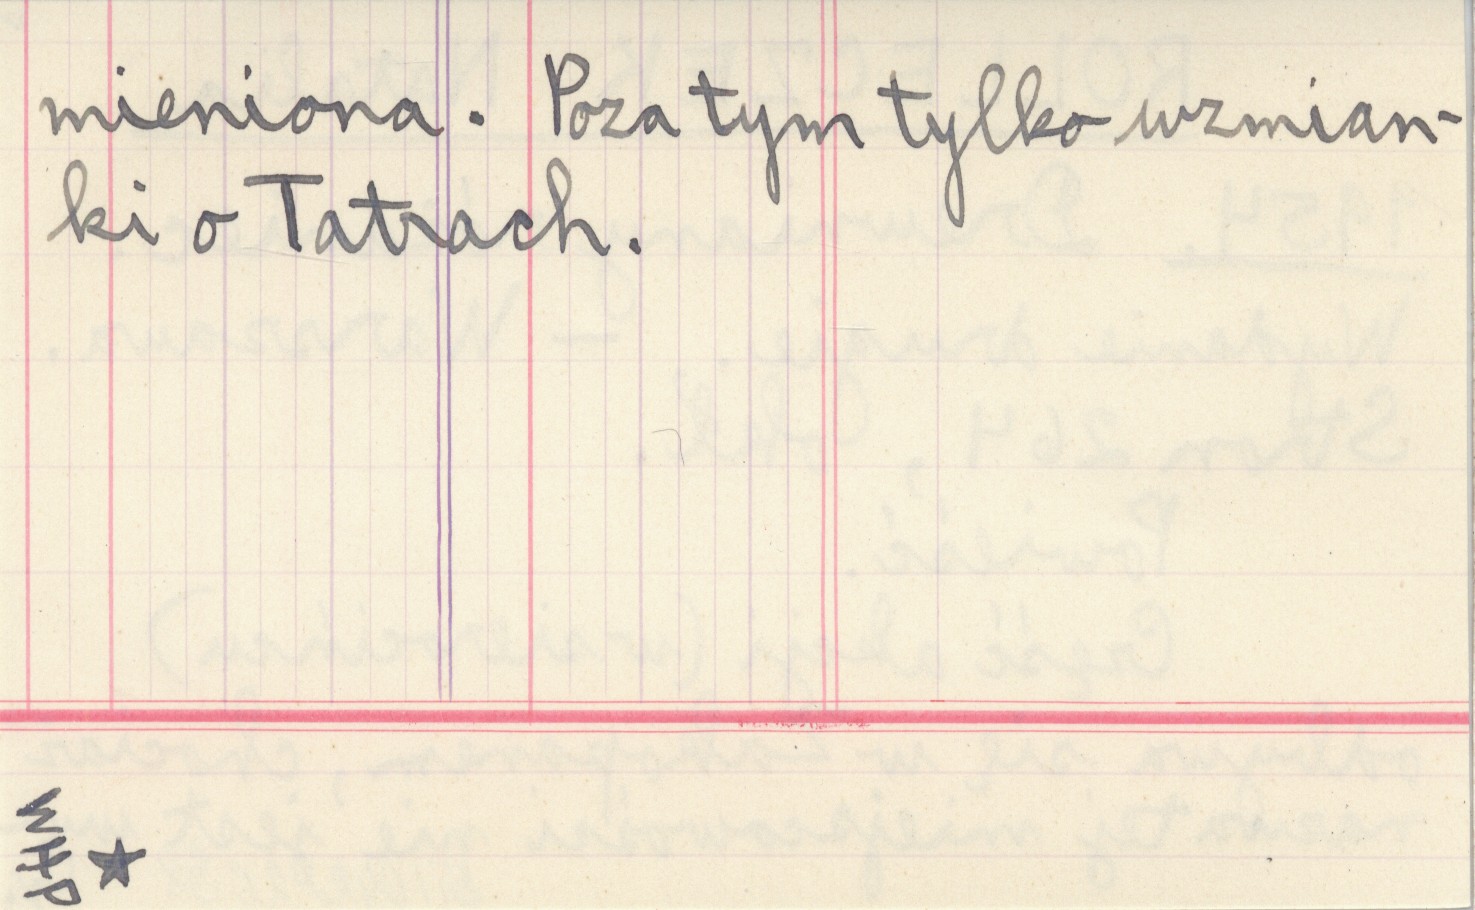 mieniona. Poza tym tylko wzmian-
ki o Tatrach.
WHP